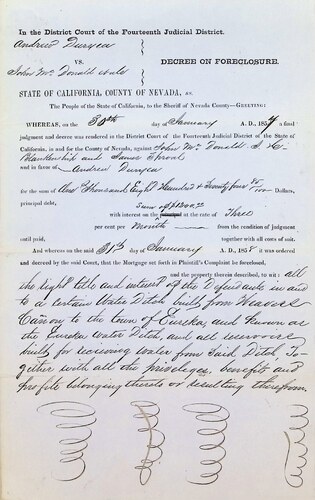 In the District Court of the Fourteenth Judicial District.
Andrew Duryea
VS.
DECREE ON FORECLOSURE.
John McDonald et als
STATE OF CALIFORNIA, COUNTY OF NEVADA, ss.
The People of the State of California, to the Sheriff of Nevada County—GREETING:
WHEREAS, on the 30th day of January A. D., 185 a final
judgment and decree was rendered in the District Court of the Fourteenth Judicial District of the State
of California, in and for the County of Nevada, against John McDonald
Blankenship and James Sproul
and in favor of Andrew Duryea
for the sum of One Thousand Eight Hundred & Twenty four /100 Dollars,
principal debt,
with interest on the principal at the rate of Three
per cent per Month from the rendition of judgment
until paid, together with all costs of suit.
And whereas on the said day of January A. D., 185 it was ordered
and decreed by the said Court, that the Mortgage set forth in Plaintiff's Complaint be foreclosed,
and the property therein described, to wit: all
the right title and interest of the Defendants in and
to a certain Water Ditch built from Weaver
Canon to the town of Eureka, and known as
the Eureka Water Ditch, and all
built for receiving water from said Ditch, To-
gether with all the privileges, benefits and
profits belonging thereto or resulting therefrom.